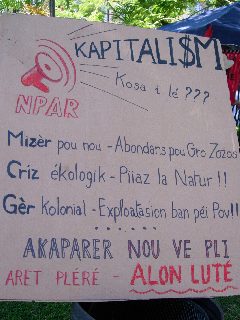 KAPITALI$M
Kosa i lé ???
NPAR
Mizèr pou nou - Abondans pou Gro Zozos
Criz ékologik - Piiaz la Natur !!
Gèr kolonial - Exploatasion ban péi Pov!!
......
AKAPARER NOU VE PLI
ARET PLÉRÉ - ALON LUTÉ